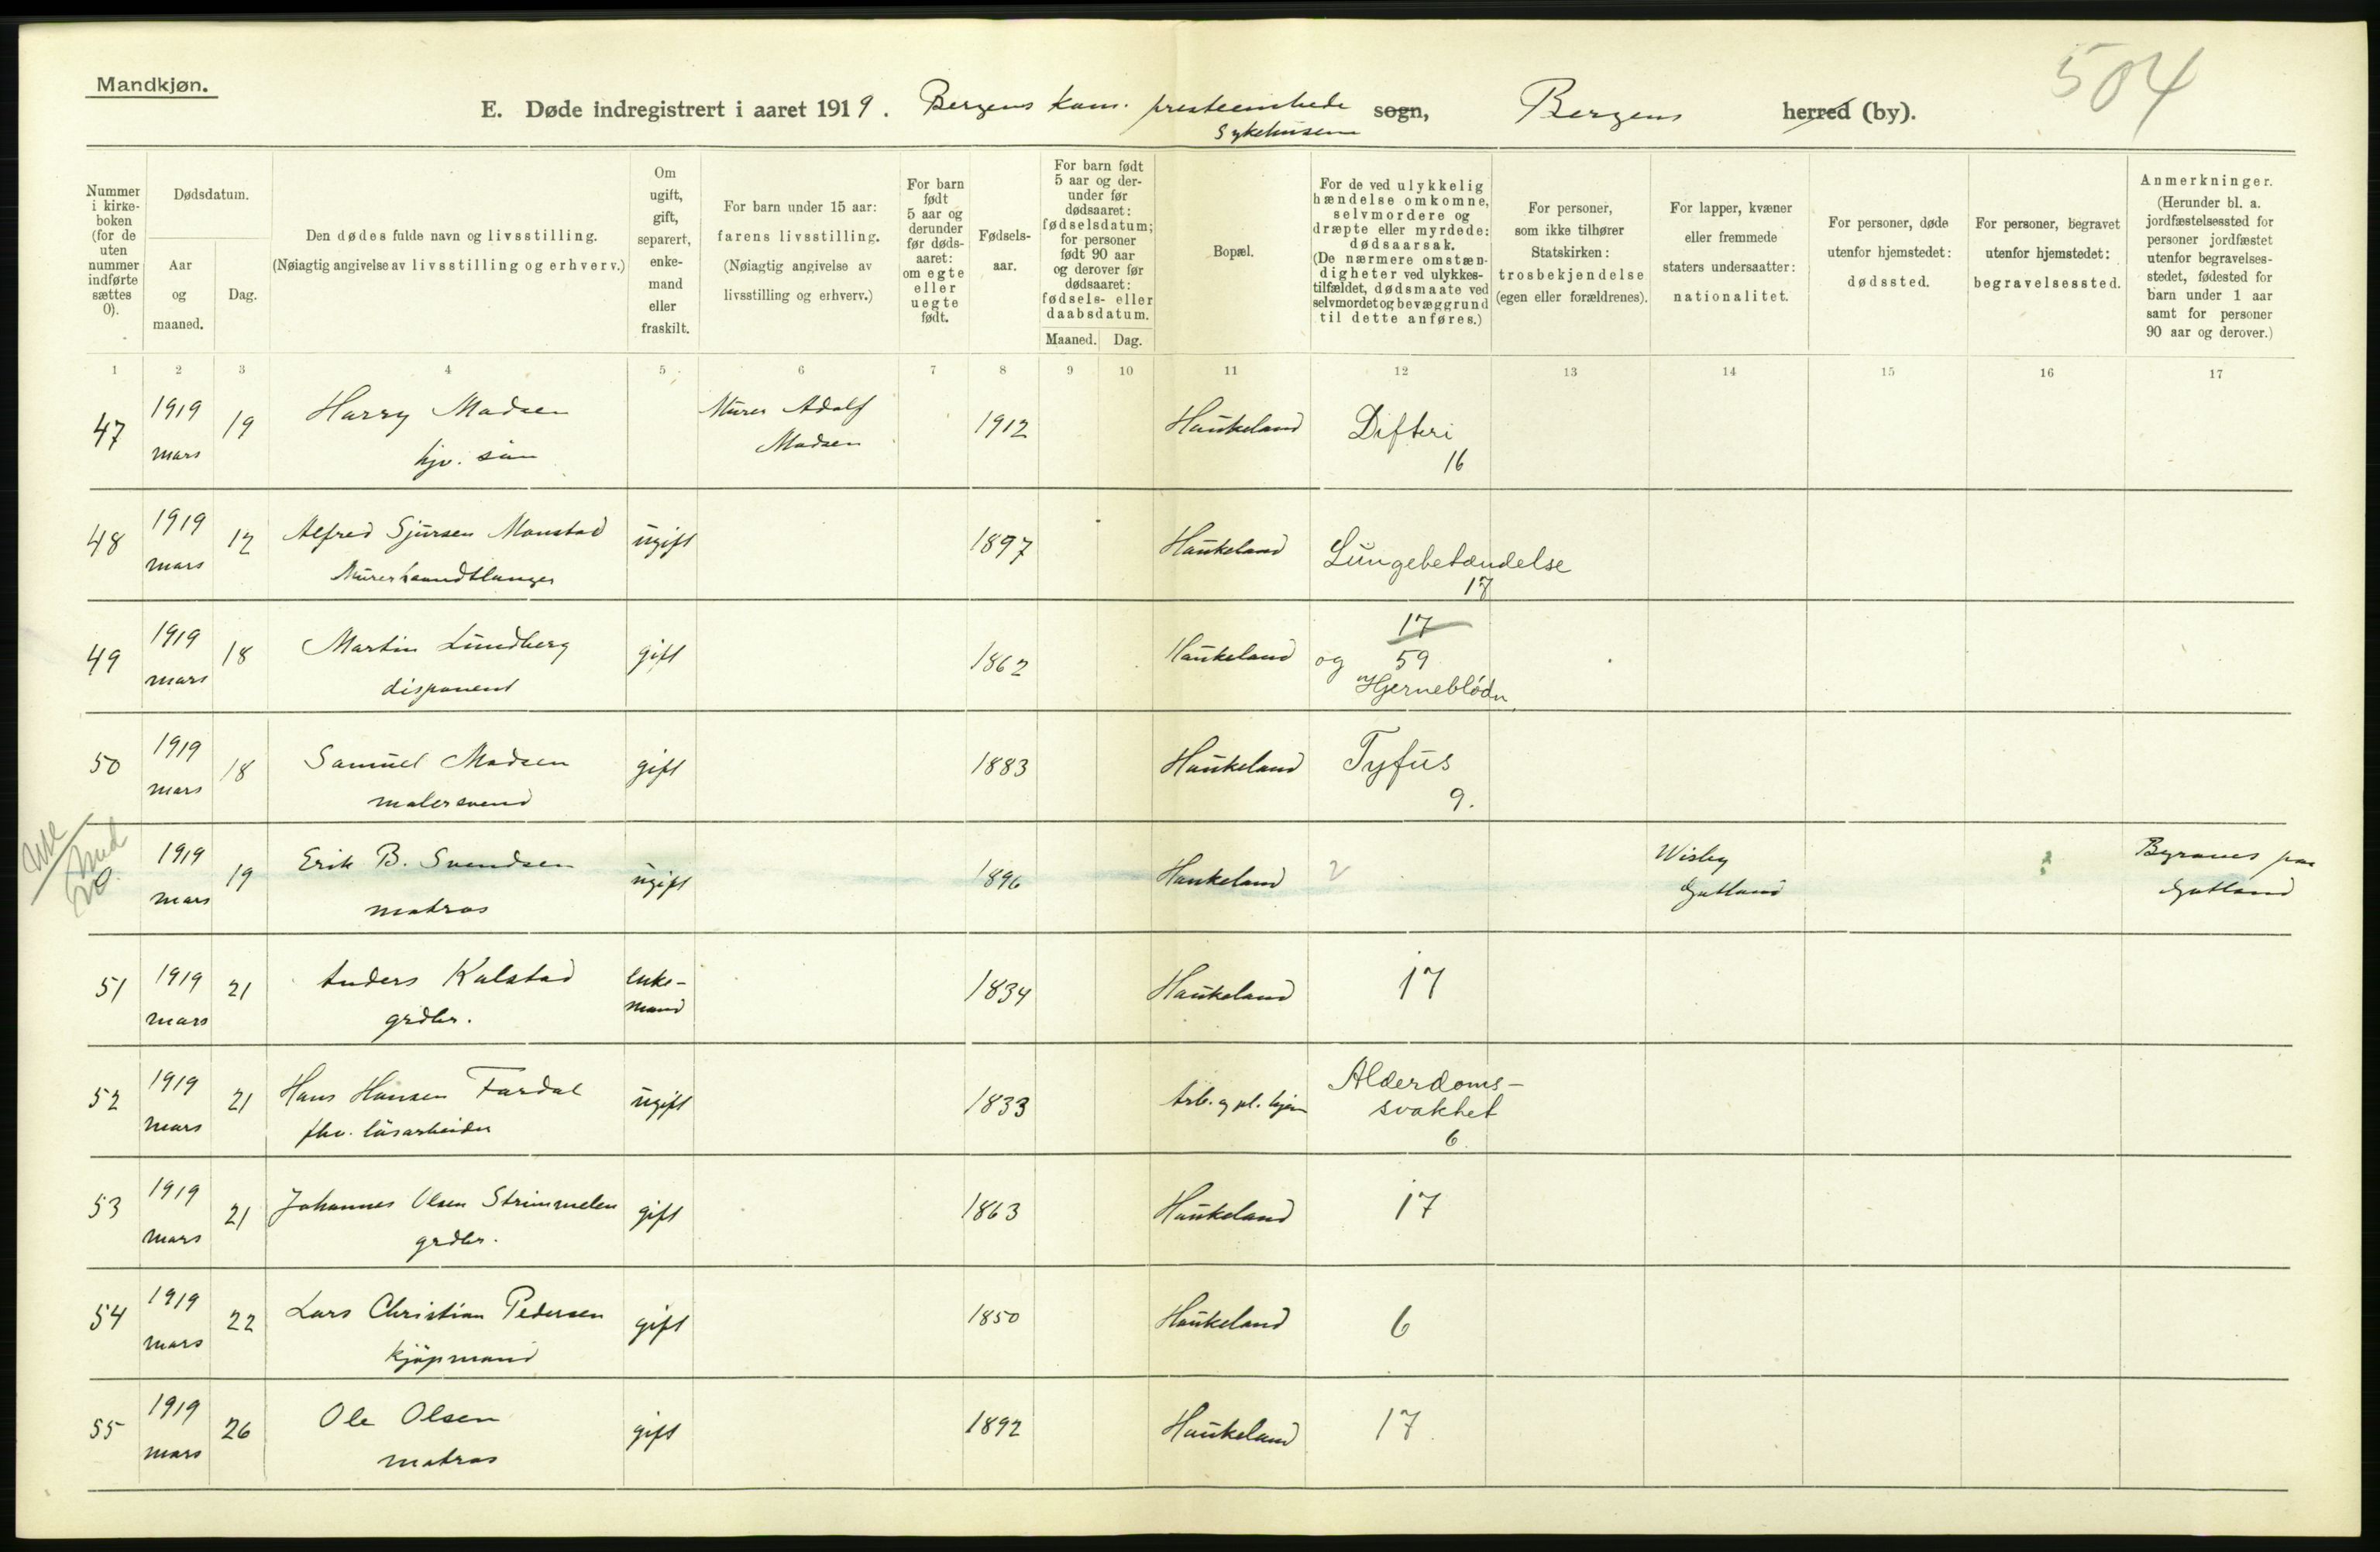 Mandkjøn.
504
E. Døde indregistrert i aaret 1919. Bergens kom. presteembede sogn, Bergens herred (by).
Sykehusene
Nummer i kirke-boken (for de uten nummer indførte sættes 0).
Dødsdatum.
Aar og maaned.
Dag.
Den dødes fulde navn og livsstilling.
(Nøiagtig angivelse av livsstilling og erhverv.)
Om ugift, gift, separert, enke-mand eller fraskilt.
For barn under 15 aar:
farens livsstilling.
(Nøiagtig angivelse av
livsstilling og erhverv.)
For barn født 5 aar og derunder før døds-aaret: om egte eller uegte født.
Fødsels-aar.
For barn født 5 aar og der-under før dødsaaret: fødselsdatum; for personer født 90 aar og derover før dødsaaret: fødsels- eller daabsdatum.
Maaned. Dag.
Bopæl.
For de ved ulykkelig hændelse omkomne, selvmordere og dræpte eller myrdede: dødsaarsak. (De nærmere omstæn-digheter ved ulykkes-tilfældet, dødsmaate ved selvmordet og bevæggrund til dette anføres.)
For personer, som ikke tilhører Statskirken: trosbekjendelse (egen eller forældrenes).
For lapper, kvæner eller fremmede staters undersaatter: nationalitet.
For personer, døde utenfor hjemstedet: dødssted.
For personer, begravet utenfor hjemstedet: begravelsessted.
Anmerkninger.
(Herunder bl. a. jordfæstelsessted for personer jordfæstet utenfor begravelses-stedet, fødested for barn under 1 aar samt for personer 90 aar og derover.)
1 2 3 4 5 6 7 8 9 10 11 12 13 14 15 16 17
47 1919 mars 19 Harry Madsen Murer Adolf Madsen 1912 Haukeland Difteri
hjv. søn 16
48 1919 mars 12 Alfred Sjursen Monstad ugift 1897 Haukeland Lungebetændelse
Murerhaandtlanger 17
49 1919 mars 18 Martin Lundberg gift 1862 Haukeland 17 og 59
disponent Hjerneblødn.
50 1919 mars 18 Samuel Madsen gift 1883 Haukeland Tyfus
malersvend 9.
1919 mars 19 Erik B. Svendsen ugift 1896 Haukeland 2 Wisby Gotland
matros Gotland
51 1919 mars 21 Anders Kalstad enke-mand 1834 Haukeland 17
grdbr.
52 1919 mars 21 Hans Hansen Fardal ugift 1833 Arb. og pl. hjem Alderdoms-svakhet
fhv. løsarbeider 6.
53 1919 mars 21 Johannes Olsen Strimmelen gift 1863 Haukeland 17
grdbr.
54 1919 mars 22 Lars Christian Pedersen gift 1850 Haukeland 6
kjøpmand
55 1919 mars 26 Ole Olsen gift 1892 Haukeland 17.
matros